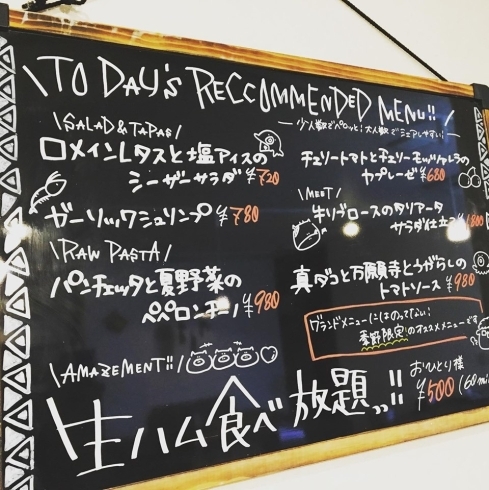 \TODAY'S RECCOMMENDED MENU!!/
少人数でペロッと!大人数でシェアしやすい!
\SALAD & TAPAS/
ロメインレタスと塩アイスの
シーザーサラダ ¥720
ガーリックシュリンプ ¥780
チェリートマトとチェリーモッツァレラの
カプレーゼ ¥680
\MEET/
牛リブロースのタリアータ
サラダ仕立て ¥1800
\RAW PASTA/
パンチェッタと夏野菜の
ペペロンチーノ ¥980
真ダコと万願寺とうがらしの
トマトソース ¥980
グランドメニューにはのってない
季節限定のオススメメニューです
\AMAZEMENT!!/
生ハム食べ放題っ!!
おひとり様
¥500 (60mi